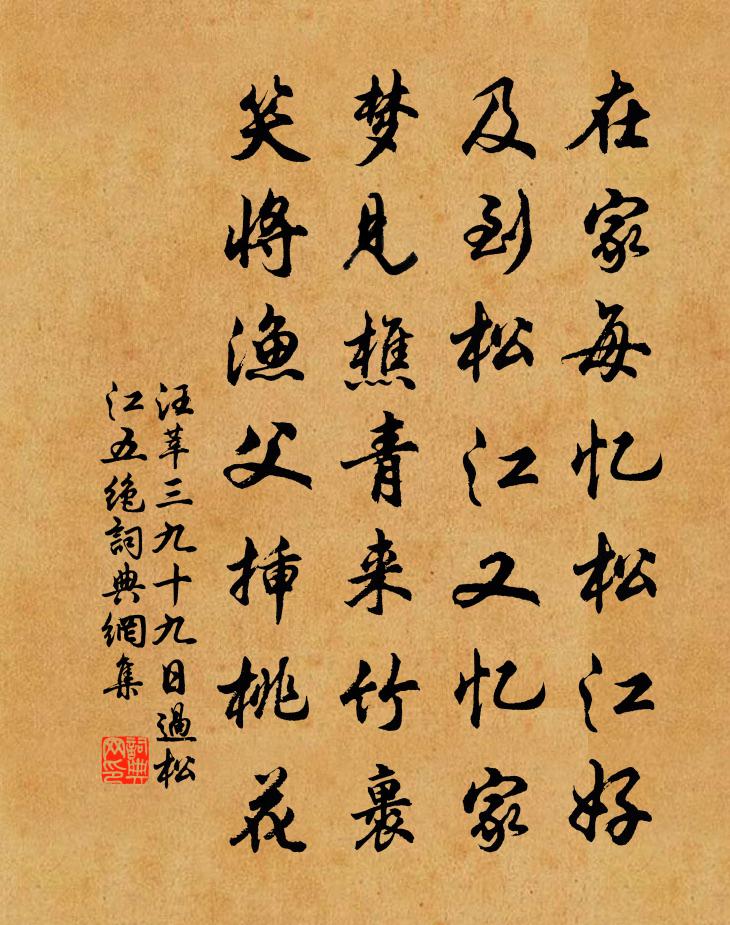 在家每忆松江好
及到松江又忆家
梦见樵青来竹裹
笑将渔父插桃花
汪莘三九十九日過松
江五绝詞典網集
詞典網印